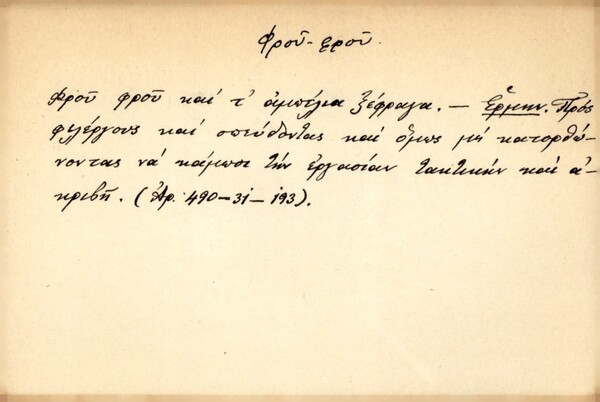 Φροῦ-φροῦ.
Φροῦ φροῦ καί τ' ἀμπέλια ξέφραγα. — Ἑρμην. Πρός
φιλέργους καί σπεύδοντας καί ὅμως μή κατορθώ-
νοντας νά κάμωσι τήν ἐργασίαν τακτικήν καί ἀ-
κριβῆ. (Ἀρ. 490-31-193).